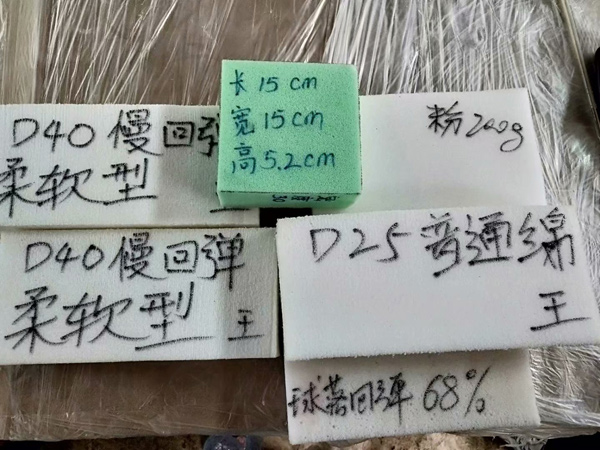 长 15 cm
宽 15 cm
高 5.2 cm
D40 慢回弹
柔软型 王
粉 200g
D40 慢回弹
柔软型 王
D25 普通绵
王
球落回弹 68%